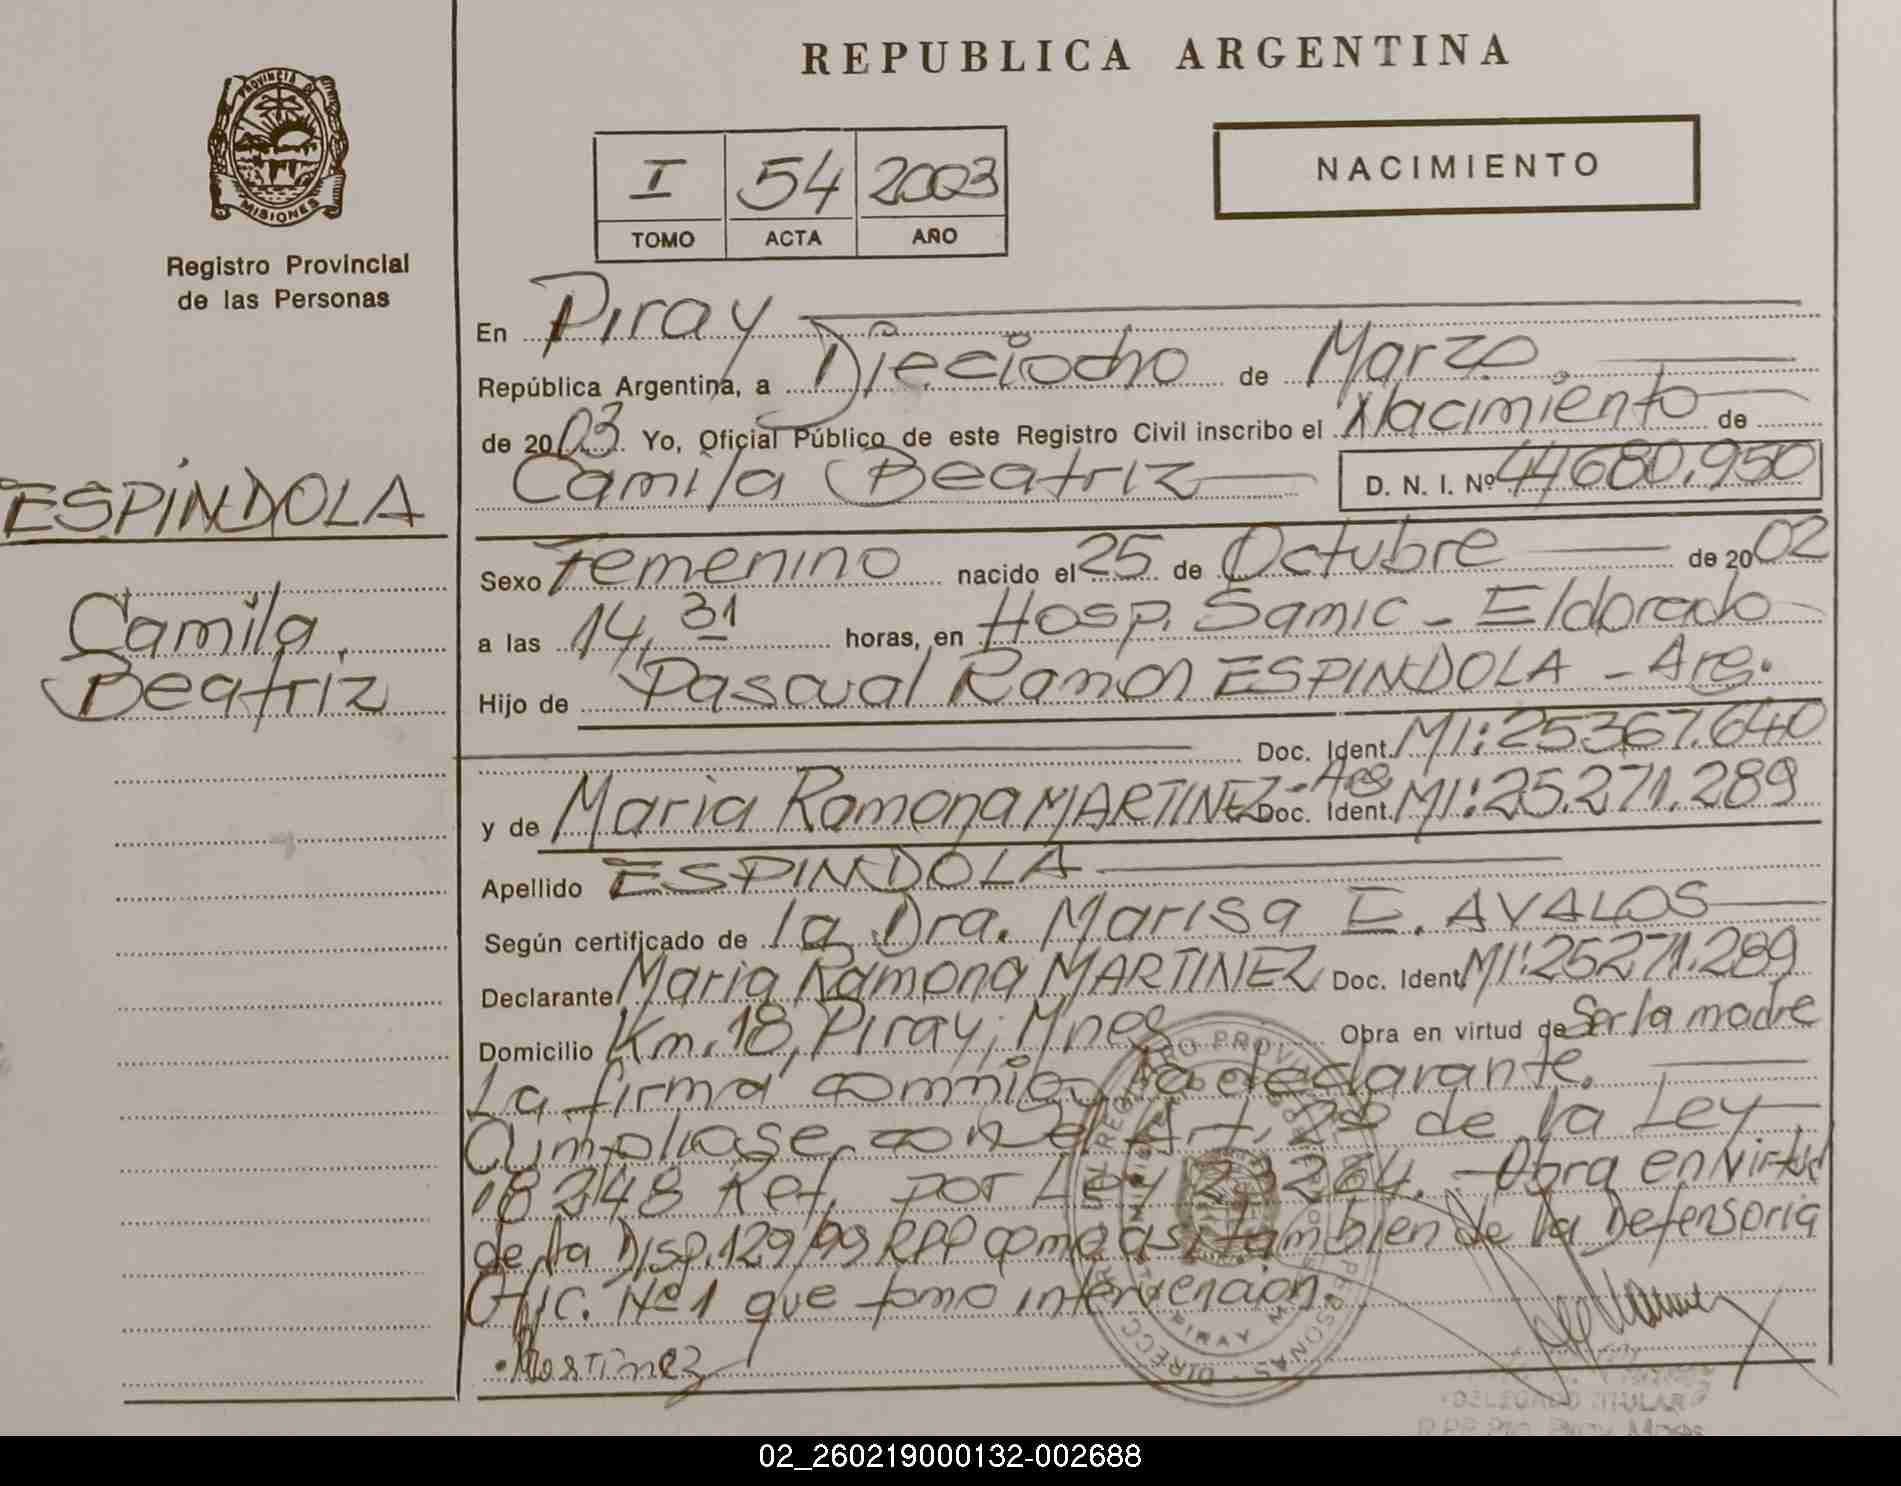 REPUBLICA ARGENTINA
PROVINCIA DE
MISIONES
Registro Provincial
de las Personas
NACIMIENTO
I 54 2003
TOMO ACTA AÑO
En Piray
República Argentina, a Dieciocho de Marzo.
de 2003. Yo, Oficial Público de este Registro Civil inscribo el Nacimiento de
Camila Beatriz D. N. I. Nº 44680.950
ESPÍNDOLA
Camila
Beatriz
Sexo Femenino nacido el 25 de Octubre de 2002
a las 14,31 horas, en Hosp. Samic - Eldorado
Hijo de Pascual Ramon ESPINDOLA - Arg.
Doc. Ident. MI: 25367.640
y de Maria Ramona MARTINEZ - Arg Doc. Ident. MI: 25.271.289
Apellido ESPINDOLA
Según certificado de la Dra. Marisa E. AVALOS
Declarante Maria Ramona MARTINEZ Doc. Ident. MI: 25271.289
Domicilio Km. 18, Piray, Mnes Obra en virtud de Ser la madre
La firma conmigo la declarante.
Cumpliose con el Art. 2º de la Ley
18248 Ref. por Ley 23264. - Obra en Virtud
de la Disp. 129/99 RPP como asi tambien de la Defensoria
Ofic. Nº 1 que tomo intervencion.
Martinez
DELEGADO TITULAR
02_260219000132-002688